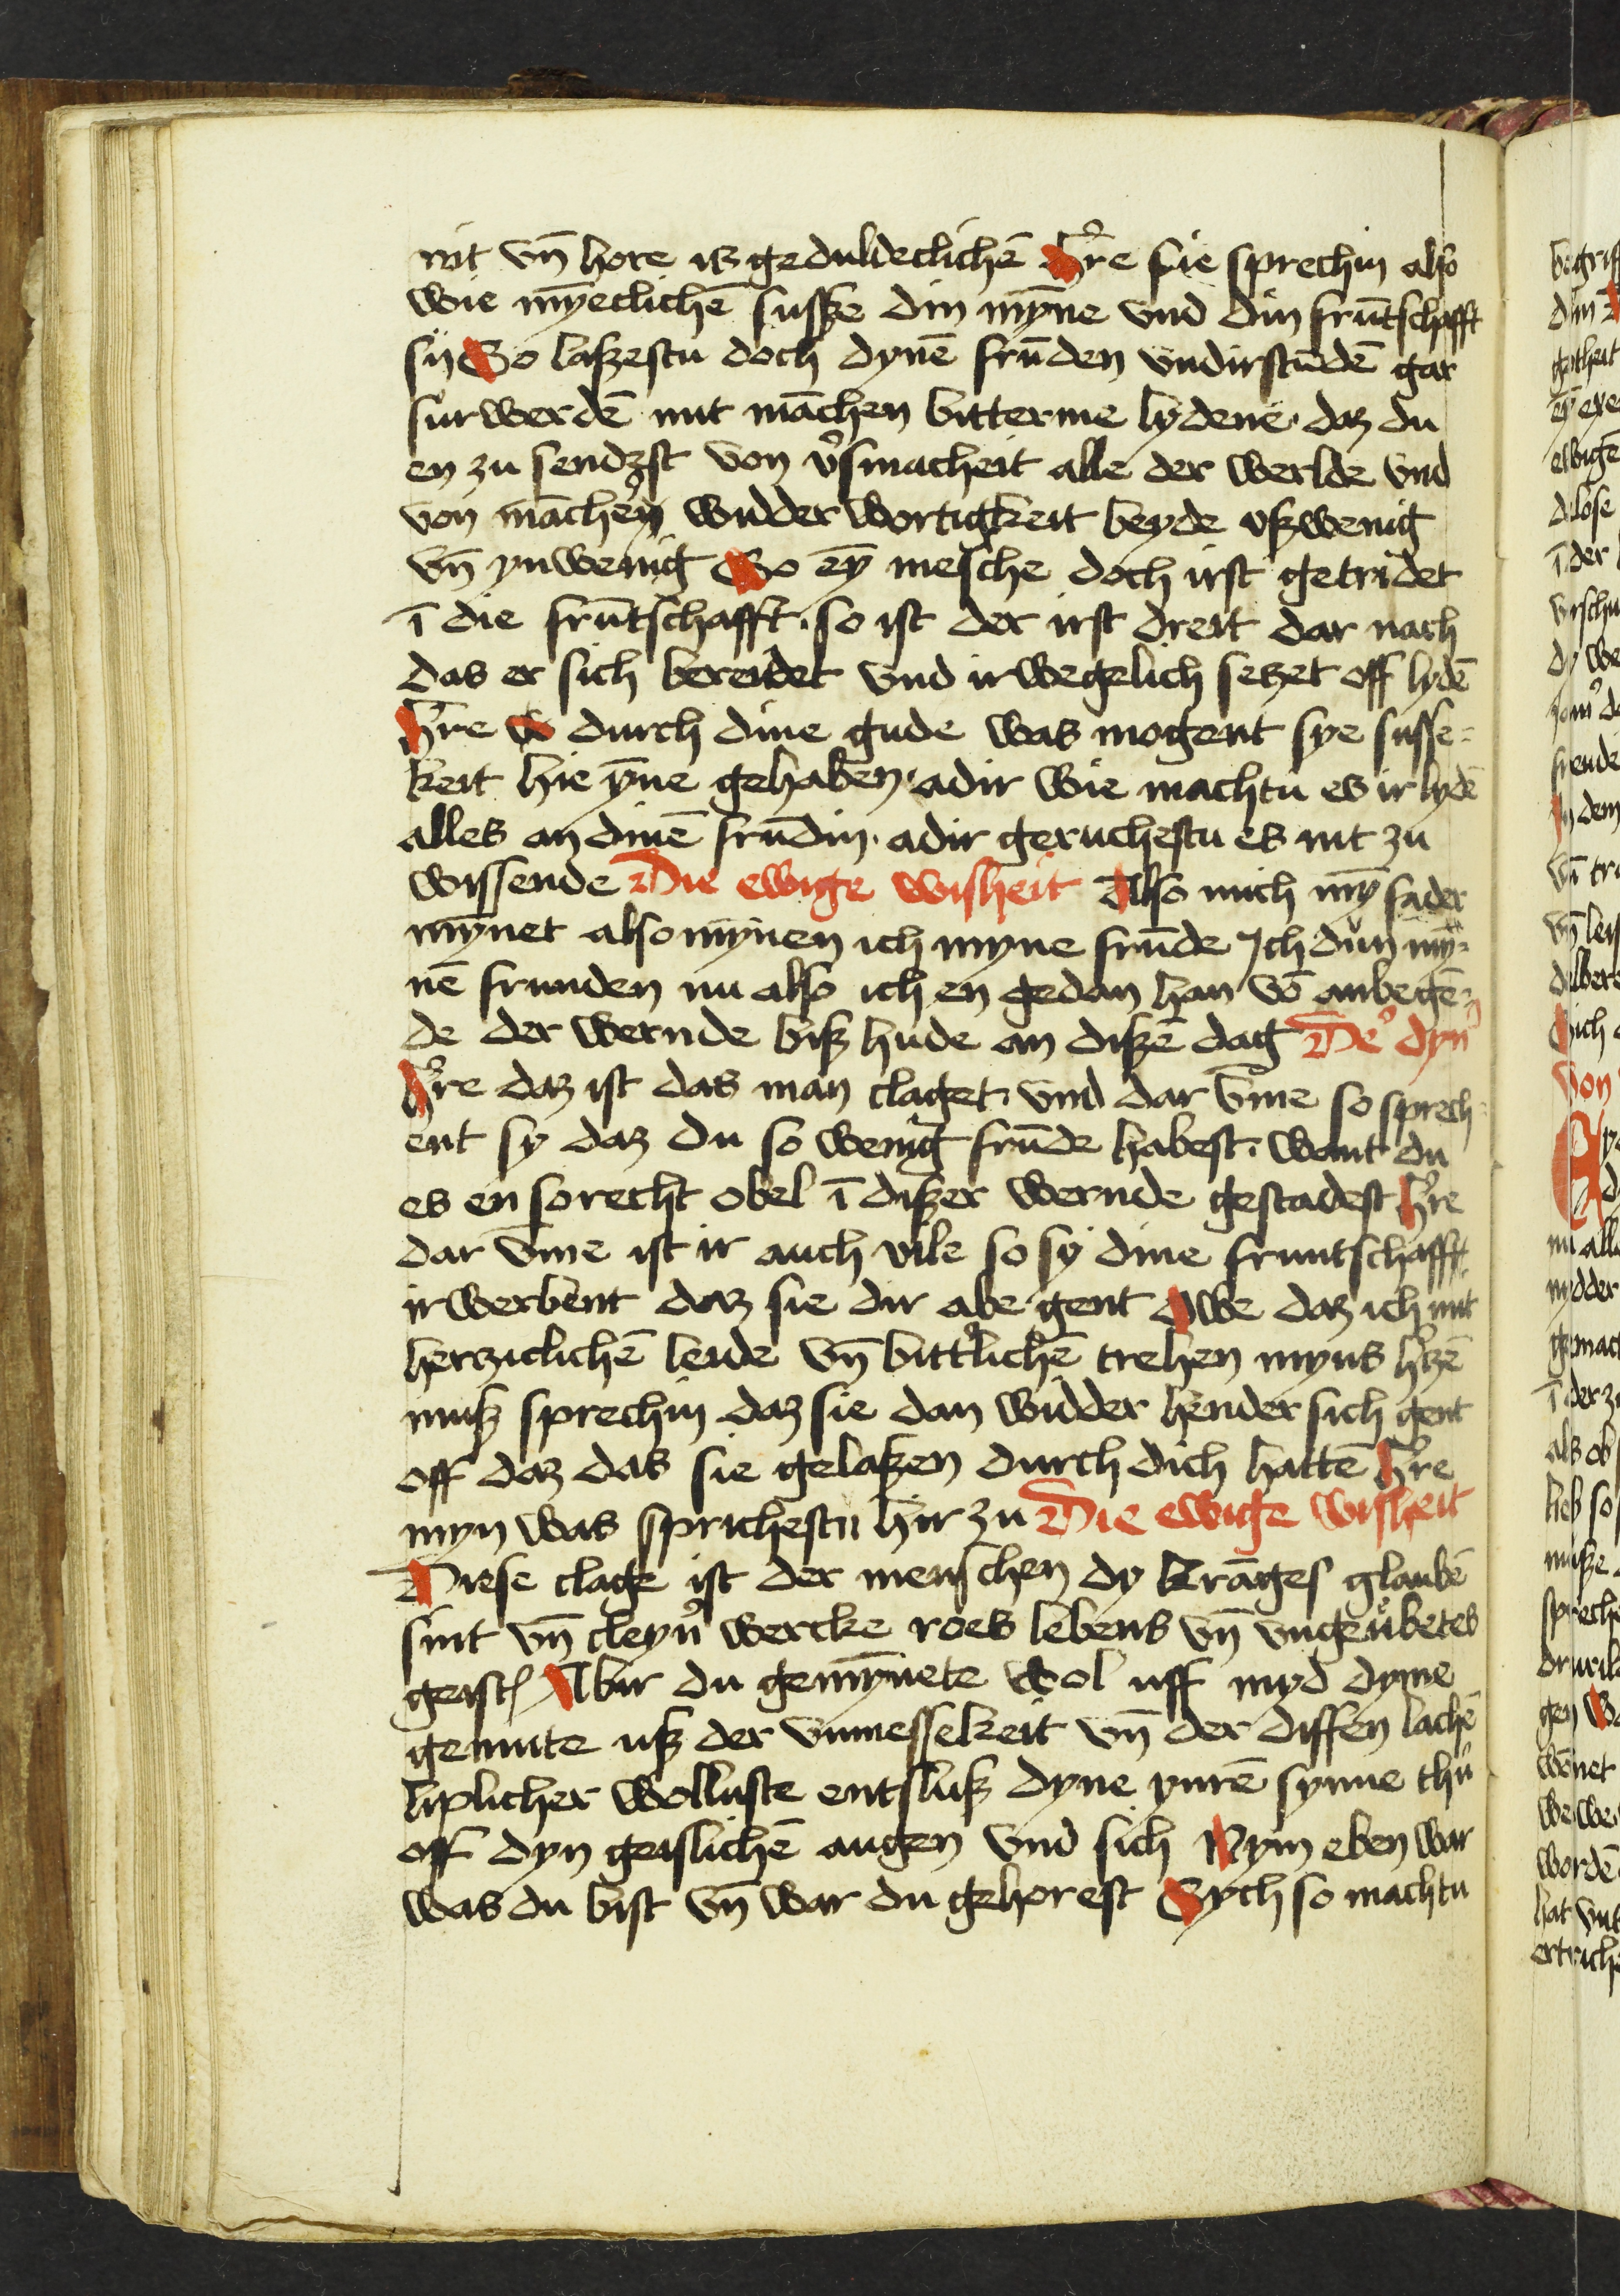 nit vn̄ hore iß gedulteclichē Hʼre sie sprechin also
wie mȳeclichē susße din mȳne vnd din frūtschafft
sy So laßestu doch dynē frūden vndirstūdē gar
sur werdē mit māchen bitterme lydene · daz du
en zu sendest von vʼsmacheit alle der werlde vnd
von māchery widder wortigkeit beyde vßwenig
vn̄ ynwenig So eȳ mēsche doch irst getridet
ī die frūtschafft · so ist der irst dreit dar nach
das er sich bereidet vnd ir wegelich setzet off lydē
Hʼre durch dine gude was mogent sye susse-
keit hie ȳne gehaben · adir wie machtu es ir lydē
alles an dinē frūdin · adir geruchestu es nit zu
wissende Die ewige wisheit Also mich mȳ fader
mȳnet also mȳnen ich myne frūde Ich dün my-
nē frunden nu also ich en gedan han vō anbegē-
de der wernde biß hude an dißē dag Deʼ dynʼ
Hʼre daz ist das man claget · vnd dar v̄me so sprech-
ent sy daz du so wenig frūde habest · want du
es en so recht obel ī dißer wernde gestadest Hʼre
dar v̄me ist ir auch vile so sy dine fruntschafft
irwerbent daz sie dir abe gent Owe daz ich mit
herziclichē leide vn̄ bittʼlichē trehen myns hʼtzē
muß sprechin daz sie dan widder hender sich gent
off daz das sie gelaßen durch dich hattē Hʼre
myn was sprichestu hir zu Die ewige wisheit
Diese clage ist der menschen dy krāges glaubē
sint vn̄ cleynʼ wercke roes lebens vn̄ vngeůbetes
geist Abir du gemȳnete wol uff myd dyme
gemute uß der vnmesselkeit vn̄ der diffen lachē
liplicher wolluste entsluß dyne ynrē synne thů
off dyn geislichē augen vnd sich Nym eben war
was du bist vn̄ war du gehorest Sych so machtu